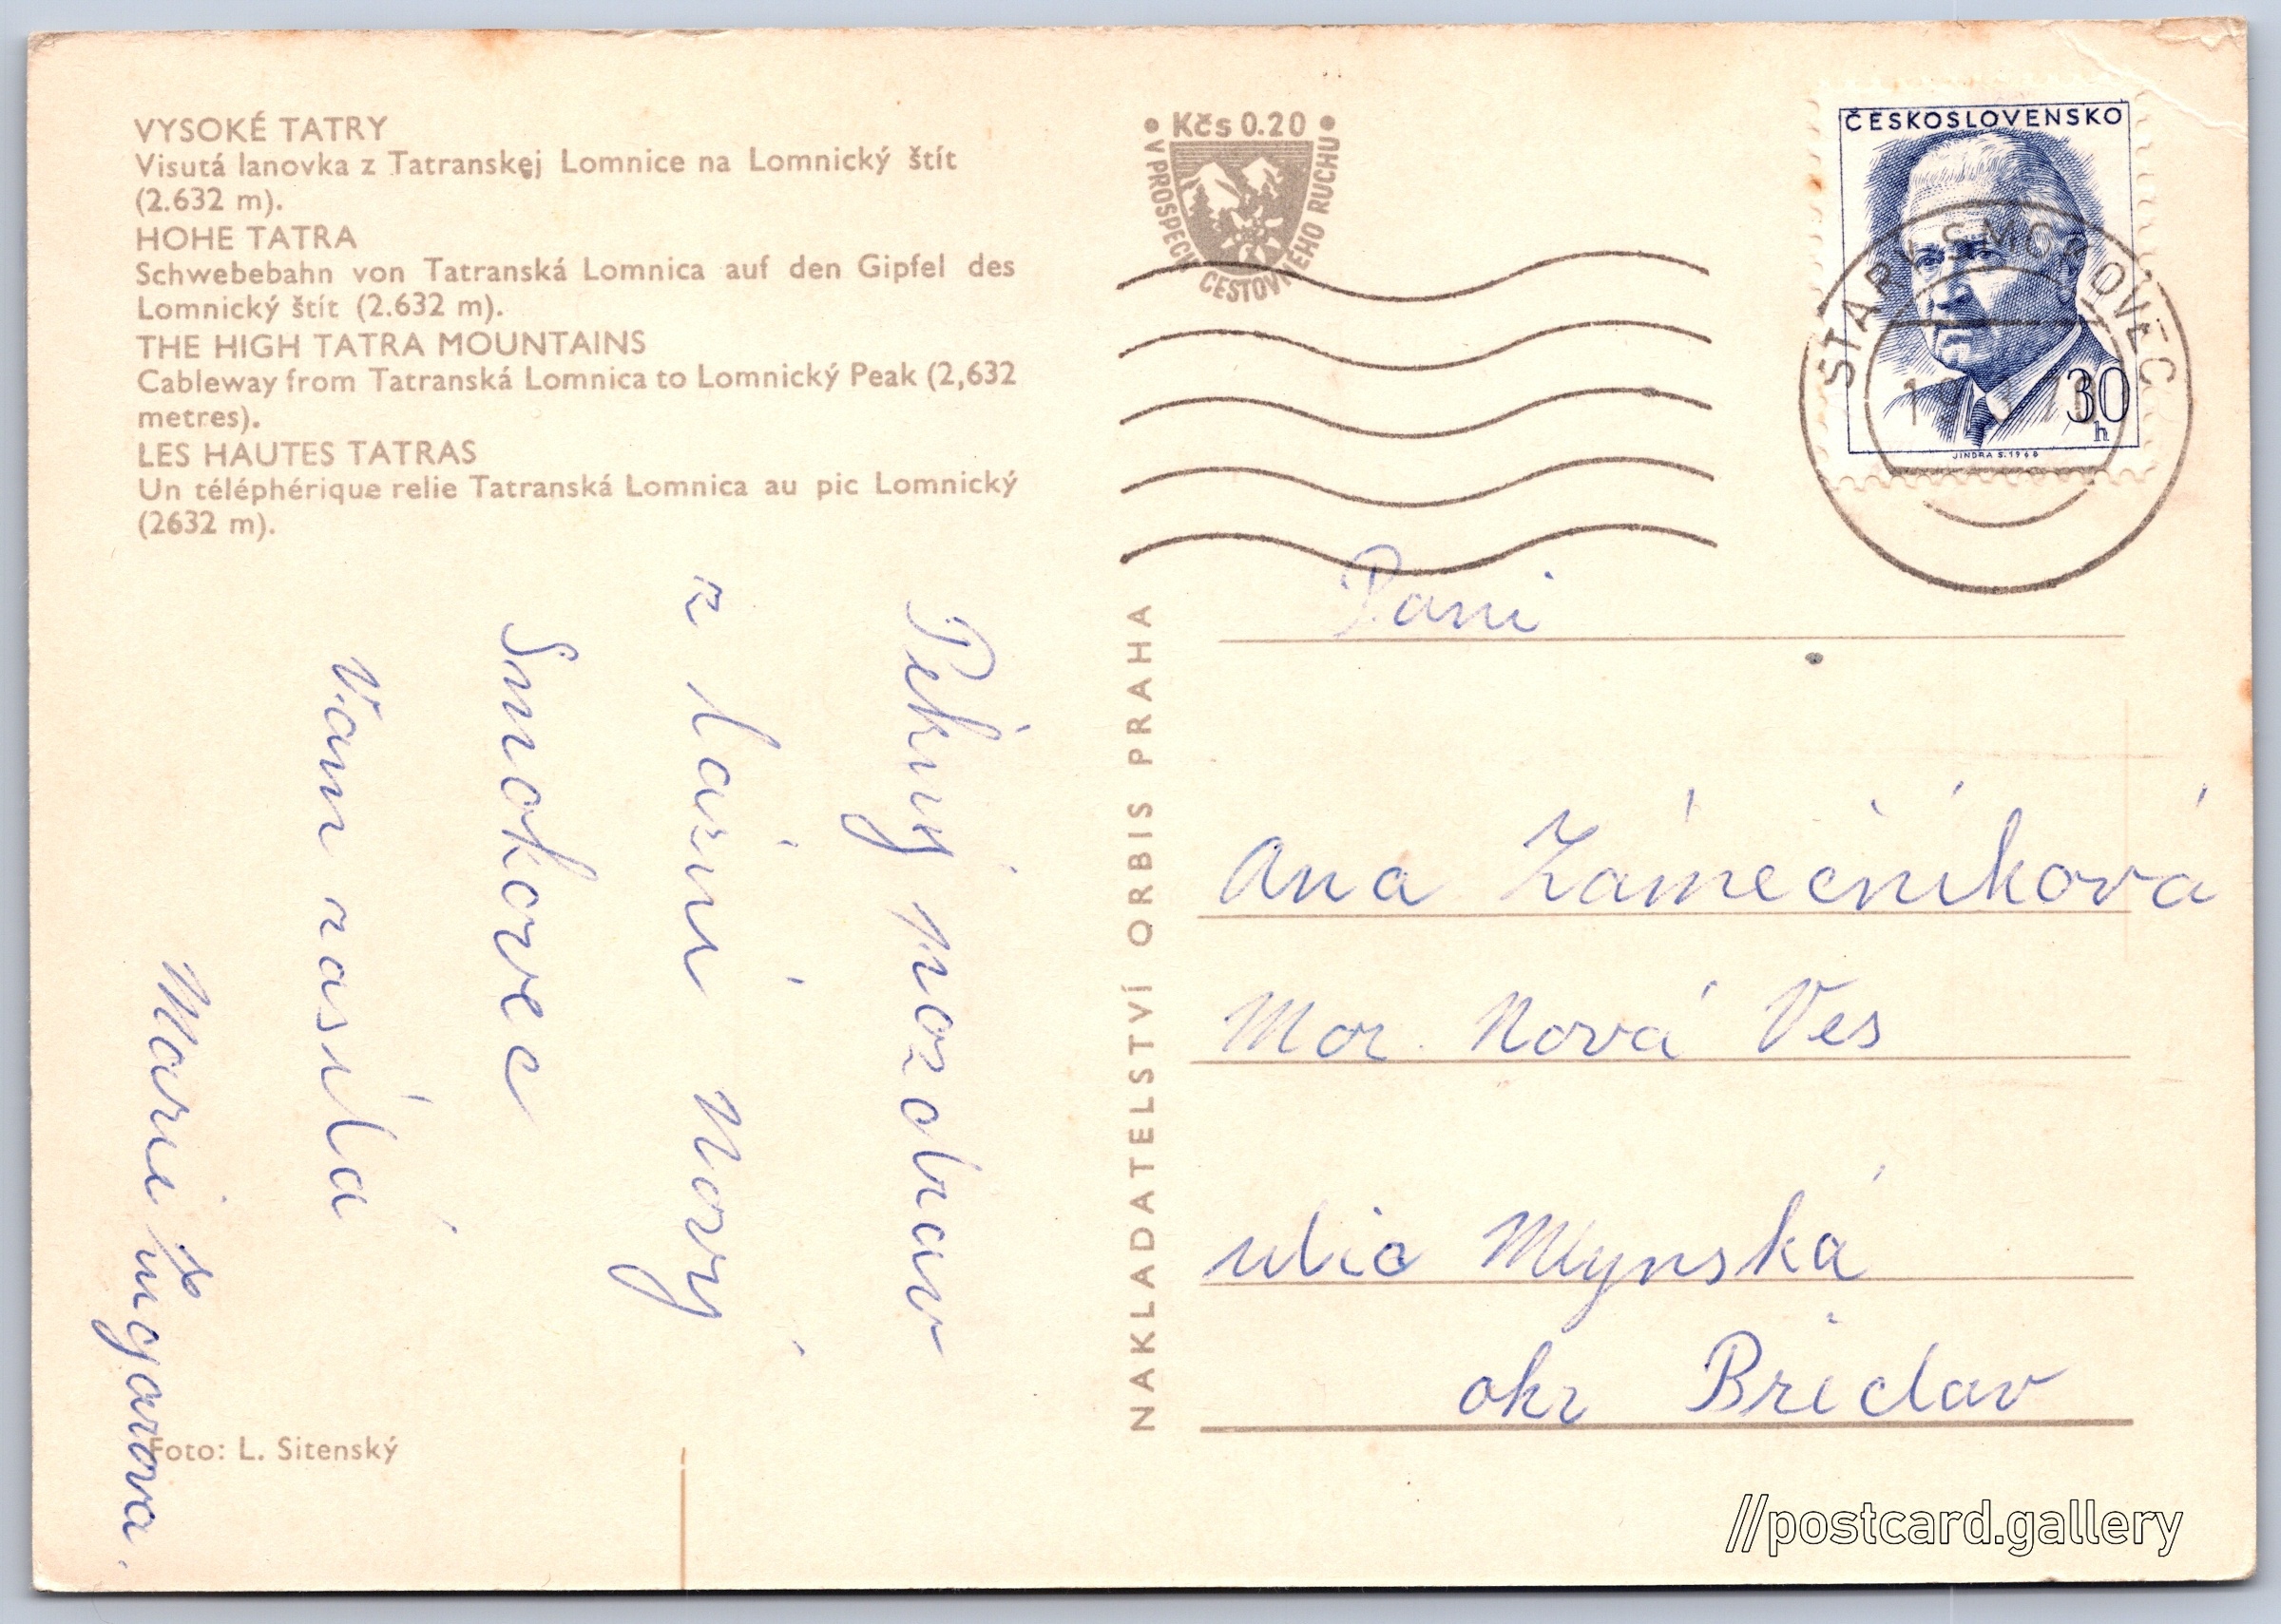 VYSOKÉ TATRY
Visutá lanovka z Tatranskej Lomnice na Lomnický štít
(2.632 m).
HOHE TATRA
Schwebebahn von Tatranská Lomnica auf den Gipfel des
Lomnický štít (2.632 m).
THE HIGH TATRA MOUNTAINS
Cableway from Tatranská Lomnica to Lomnický Peak (2,632
metres).
LES HAUTES TATRAS
Un téléphérique relie Tatranská Lomnica au pic Lomnický
(2632 m).
Pekný pozdrav
z lázni Nový
Smokovec
Vám zasílá
Mari
Foto: L. Sitenský
NAKLADATELSTVÍ ORBIS PRAHA
• Kčs 0.20 •
V PROSPĚCH CESTOVNÉHO RUCHU
ČESKOSLOVENSKO
30
h
JINDRA S. 1968
STARÝ SMOKOVEC
Pani
Ana Zámečníková
Mor. Nová Ves
ulic Mlynská
okr Breclav
//postcard.gallery